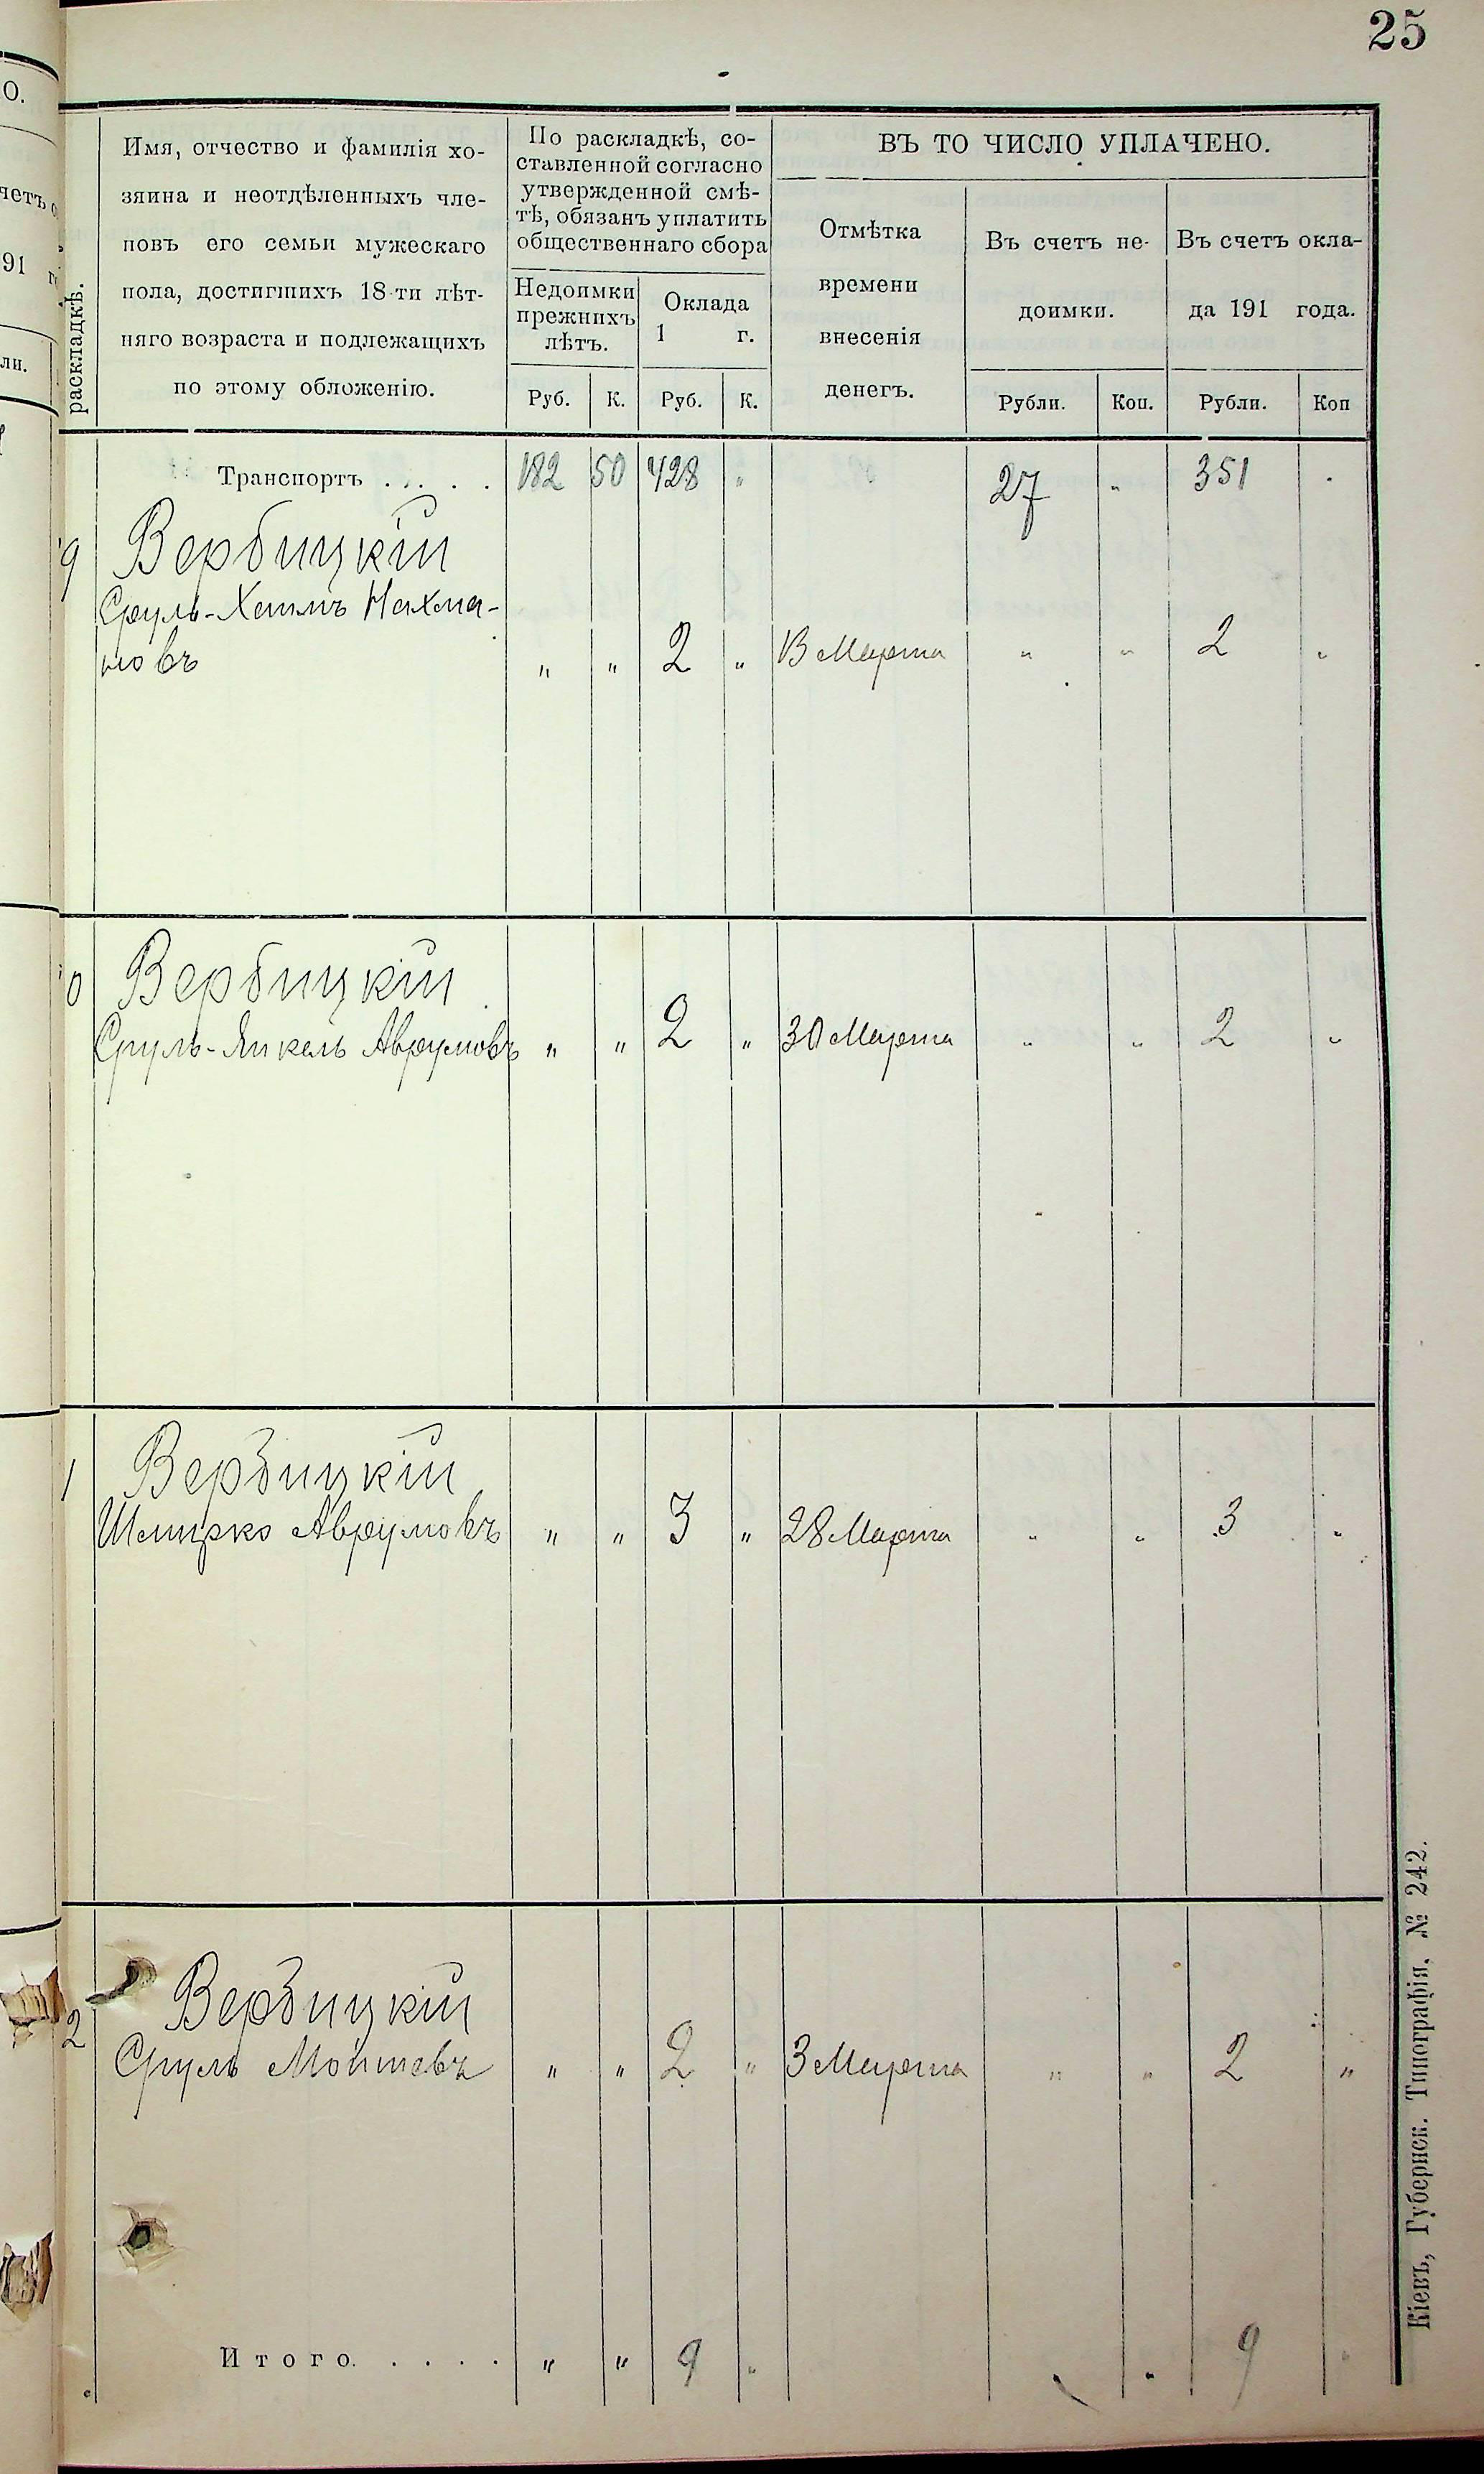 25
О.
четъ
91
ли.
раскладкѣ.
Имя, отчество и фамилія хо-
зяина и неотдѣленныхъ чле-
новъ его семьи мужескаго
пола, достигшихъ 18-ти лѣт-
няго возраста и подлежащихъ
по этому обложенію.
По раскладкѣ, со-
ставленной согласно
утвержденной смѣ-
тѣ, обязанъ уплатить
общественнаго сбора
Недоимки
прежнихъ
лѣтъ.
Оклада
1 г.
Руб. К. Руб. К.
ВЪ ТО ЧИСЛО УПЛАЧЕНО.
Отмѣтка
времени
внесенія
денегъ.
Въ счетъ не-
доимки.
Въ счетъ окла-
да 191 года.
Рубли. Коп. Рубли. Коп
Транспортъ . . . . . 182 50 428 " 27 " 351 "
9 Вербицкій
Сруль-Хаимъ Нахма-
новъ " " 2 " 13 Марта " " 2 "
0 Вербицкій
Сруль-Янкель Аврумовъ " " 2 " 30 Марта " " 2 "
1 Вербицкій
Шмерко Аврумовъ " " 3 " 28 Марта " " 3 "
2 Вербицкій
Сруль Мошевъ " " 2 " 3 Марта " " 2 "
Итого. . . . . " " 9 " " 9 "
Кіевъ, Губернск. Типографія, № 242.